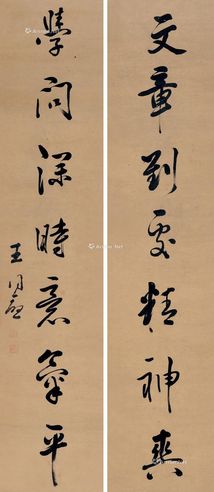 文章到處精神爽
學問深時意氣平
王同愈